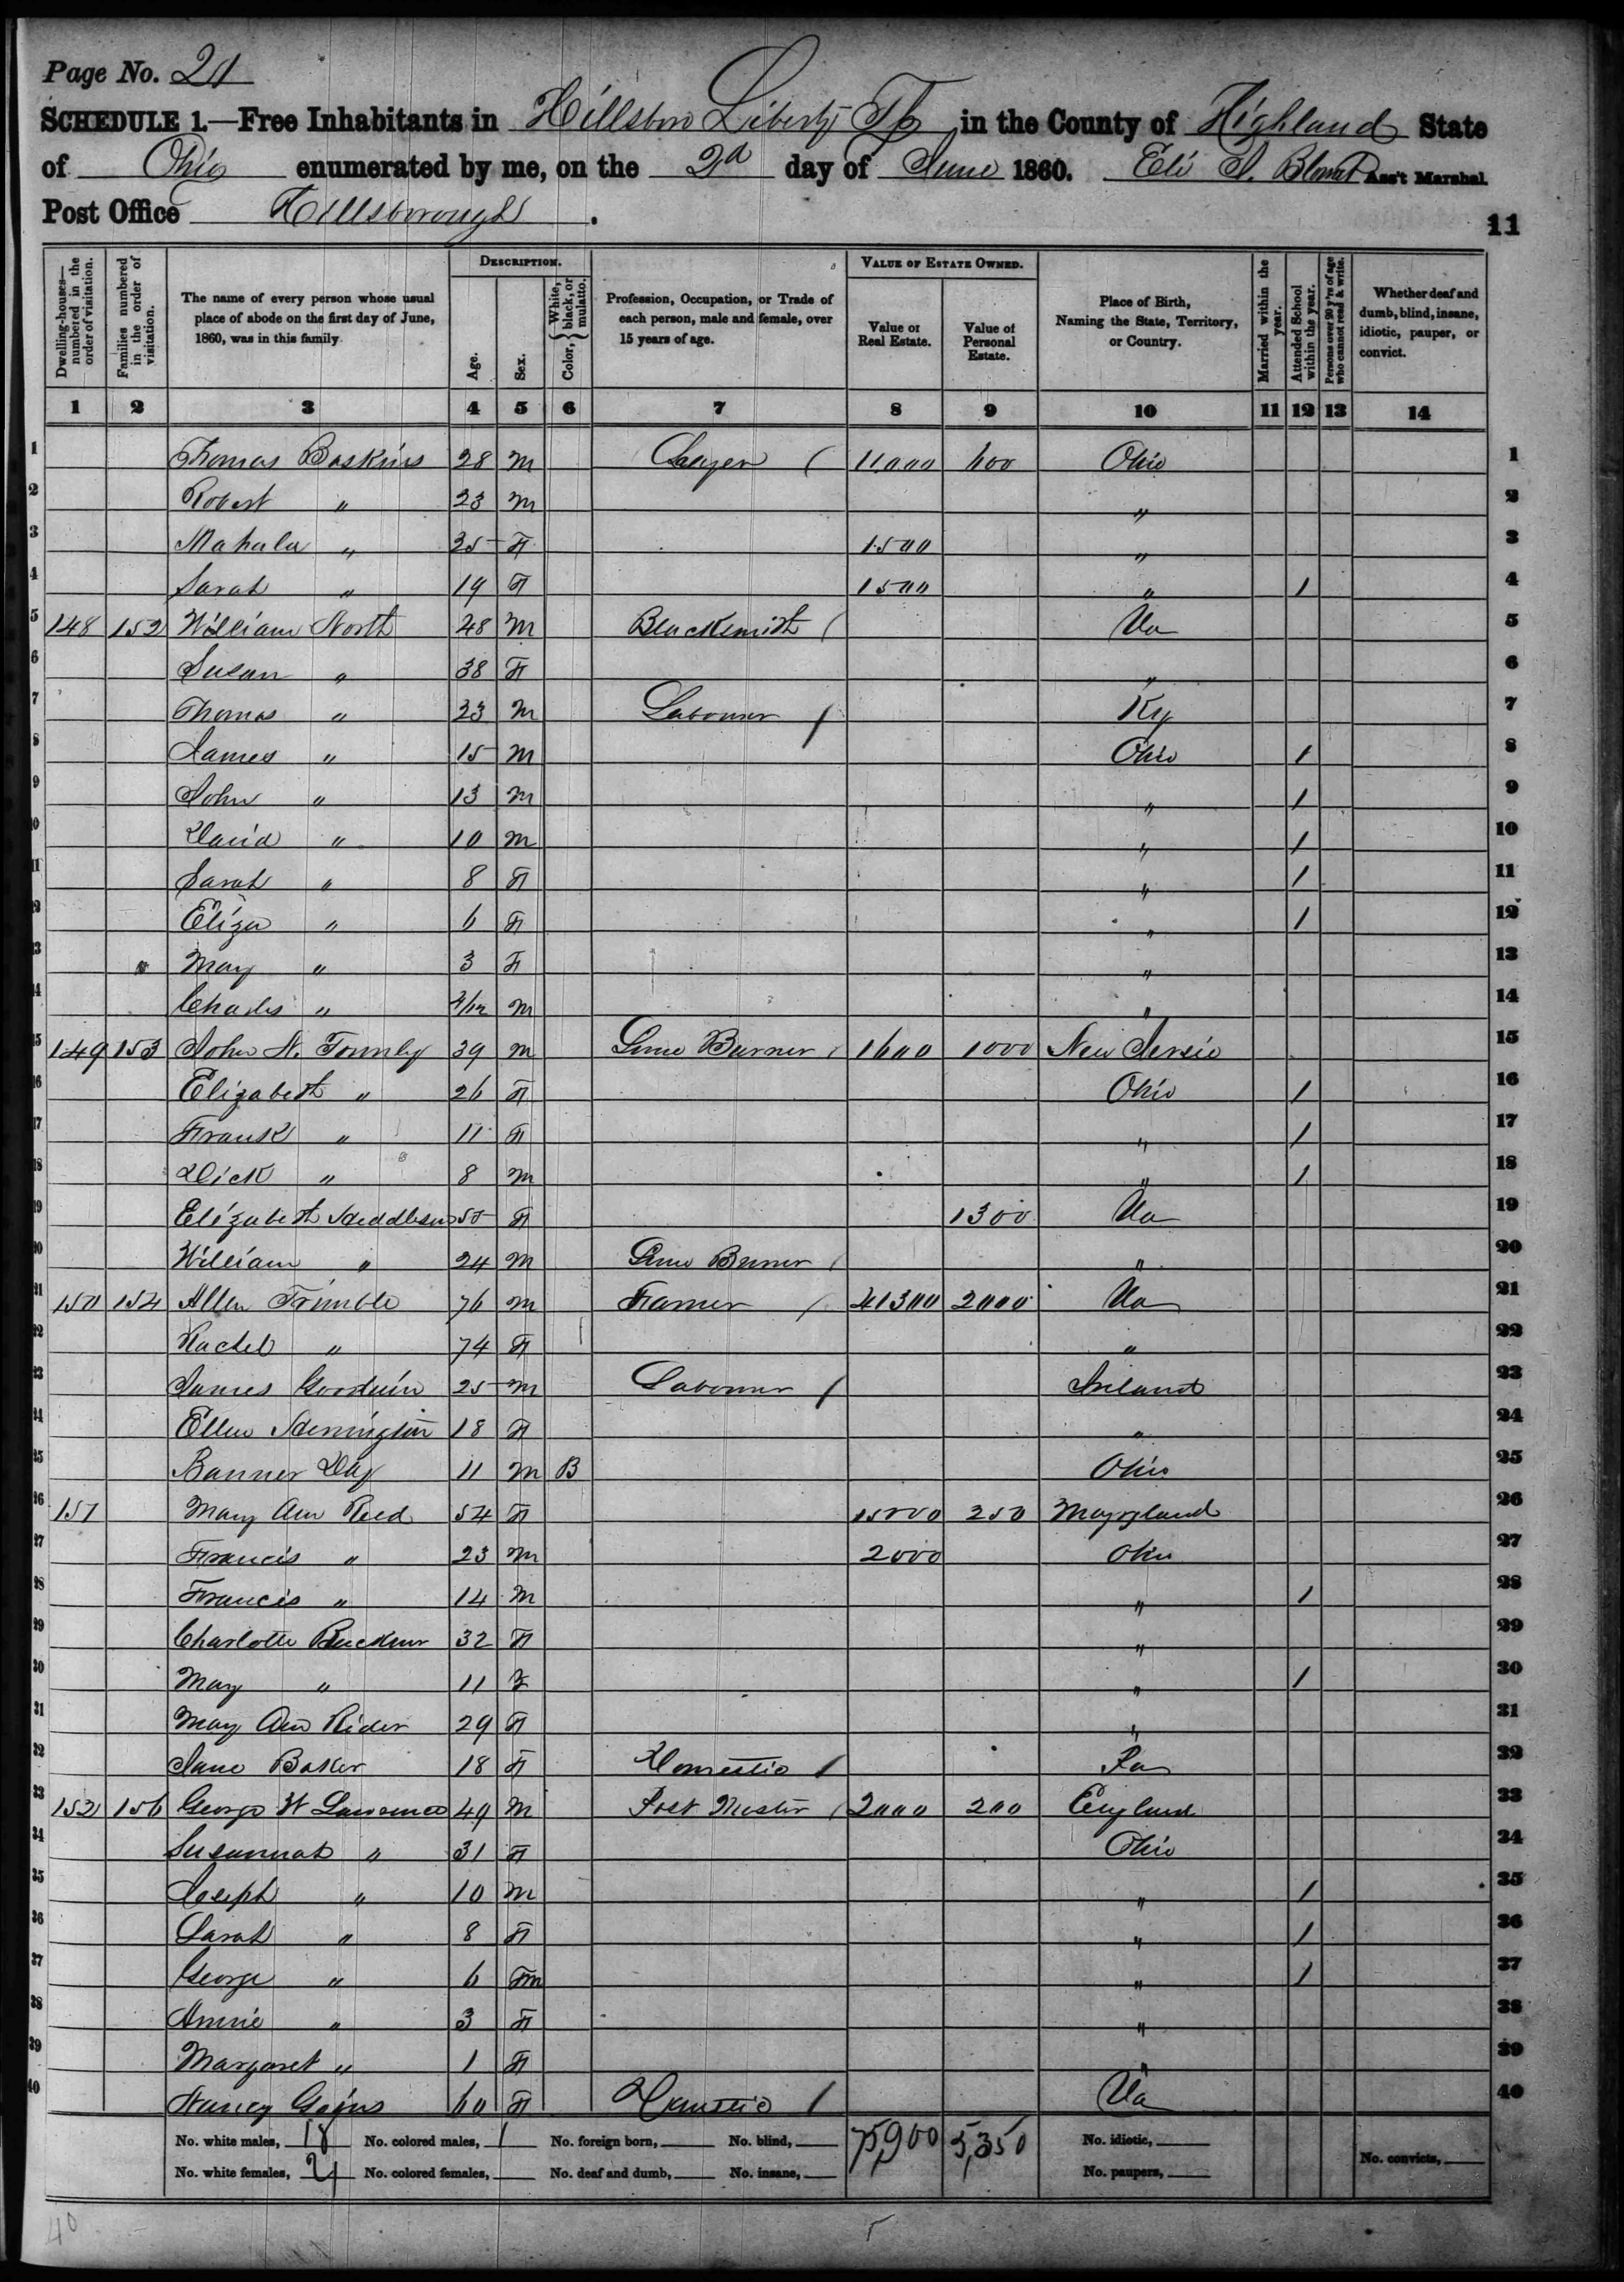 Page No. 21
SCHEDULE 1.—Free Inhabitants in Hillsboro Liberty Tp in the County of Highland State
of Ohio enumerated by me, on the 2d day of June 1860. Eli Ass't Marshal.
Post Office Hillsborough.
11
DESCRIPTION. VALUE OF ESTATE OWNED.
Dwelling-houses—numbered in the order of visitation. Families numbered in the order of visitation. The name of every person whose usual place of abode on the first day of June, 1860, was in this family. Age. Sex. Color, {White, black, or mulatto. Profession, Occupation, or Trade of each person, male and female, over 15 years of age. Value of Real Estate. Value of Personal Estate. Place of Birth, Naming the State, Territory, or Country. Married within the year. Attended School within the year. Persons over 20 y'rs of age who cannot read & write. Whether deaf and dumb, blind, insane, idiotic, pauper, or convict.
1 2 3 4 5 6 7 8 9 10 11 12 13 14
1 Thomas Baskins 28 M 11,000 600 Ohio 1
2 Robert " 23 M " 2
3 Mahala " 35 F 1500 " 3
4 Sarah " 19 F 1500 " 1 4
5 148 152 William North 48 M Blacksmith Va 5
6 Susan " 38 F " 6
7 Thomas " 23 M Labourer Ky 7
8 James " 15 M Ohio 1 8
9 John " 13 M " 1 9
10 David " 10 M " 1 10
11 Sarah " 8 F " 1 11
12 Eliza " 6 F " 1 12
13 Mary " 3 F " 13
14 Charles " M " 14
15 149 153 John N. Townly 39 M Lime Burner 1600 1000 New Jersie 15
16 Elizabeth " 26 F Ohio 1 16
17 Frank " 11 F " 1 17
18 Dick " 8 M " 1 18
19 Elizabeth 50 F 1300 Va 19
20 William " 24 M Lime Burner " 20
21 150 154 Allen Trimble 76 M Farmer 41300 2000 Va 21
22 Rachel " 74 F " 22
23 James Goodwin 25 M Labourer Ireland 23
24 Ellen 18 F " 24
25 Banner Day 11 M B Ohio 25
26 151 Mary Ann Reed 54 F 15000 250 Maryland 26
27 Francis " 23 M 2000 Ohio 27
28 Francis " 14 M " 1 28
29 Charlotte 32 F " 29
30 Mary " 11 F " 1 30
31 Mary Ann Rider 29 F " 31
32 Jane Baker 18 F Domestic Pa 32
33 152 156 George W Lawrence 49 M Post Master 2000 200 England 33
34 Susannah " 31 F Ohio 34
35 Joseph " 10 M " 1 35
36 Sarah " 8 F " 1 36
37 George " 6 Fm " 1 37
38 Annie " 3 F " 38
39 Margaret " 1 F " 39
40 Nancy Goins 60 F Domestic Va 40
No. white males, 18 No. colored males, 1 No. foreign born, No. blind, 75,900 5,350 No. idiotic,
No. white females, 21 No. colored females, No. deaf and dumb, No. insane, No. paupers, No. convicts,
40